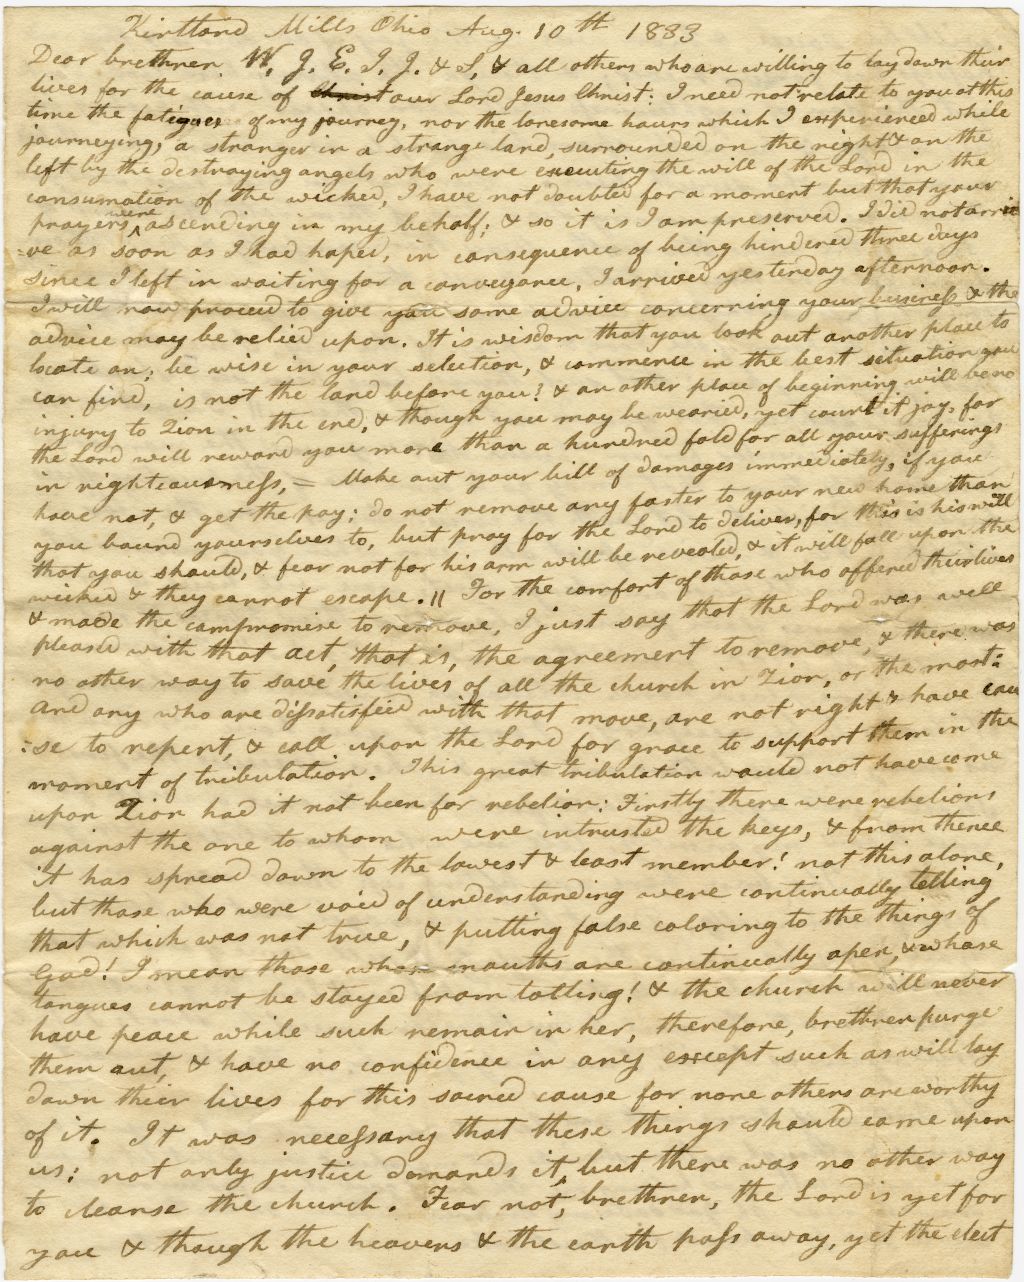 Kirtland Mills Ohio Aug. 10th 1833
Dear brethren W. J. E. I. J. & S, & all others who are willing to lay down their
lives for the cause of Christ our Lord Jesus Christ: I need not relate to you at this
time the fatigues of my journey, nor the lonesome hours which I experienced while
journeying, a stranger in a strange land, surrounded on the right & on the
left by the destroying angels who were executing the will of the Lord in the
consumation of the wicked, I have not doubted for a moment but that your
prayers were ascending in my behalf; & so it is I am preserved. I did not arri
=ve as soon as I had hoped, in consequence of being hindered three days
since I left in waiting for a conveyance, I arrived yesterday afternoon.
I will now proceed to give you some advice concerning your business & the
advice may be relied upon. It is wisdom that you look out another place to
locate on; be wise in your selection, & commence in the best situation you
can find, is not the land before you? & an other place of beginning will be no
injury to Zion in the end, & though you may be wearied, yet count it joy, for
the Lord will reward you more than a hundred fold for all your sufferings
in righteousness, = Make out your bill of damages immediately, if you
have not, & get the pay; do not remove any faster to your new home than
you bound yourselves to, but pray for the Lord to deliver, for this is his will
that you should, & fear not for his arm will be revealed, & it will fall upon the
wicked & they cannot escape. || For the comfort of those who offered their lives
& made the compromise to remove, I just say that the Lord was well
pleased with that act, that is, the agreement to remove, & there was
no other way to save the lives of all the church in Zion, or the most:
and any who are dissatisfied with that move, are not right & have cau
:se to repent, & call upon the Lord for grace to support them in the
moment of tribulation. This great tribulation would not have come
upon Zion had it not been for rebelion: Firstly there were rebelions
against the one to whom were intrusted the keys, & from thence
it has spread down to the lowest & least member! not this alone,
but those who were void of understanding were continually telling
that which was not true, & putting false coloring to the things of
God! I mean those whose mouths are continually open, & whose
tongues cannot be stayed from tatling! & the church will never
have peace while such remain in her, therefore, brethren purge
them out, & have no confidence in any except such as will lay
down their lives for this sacred cause for none others are worthy
of it. It was necessary that these things should come upon
us: not only justice demands it, but there was no other way
to cleanse the church. Fear not, brethren, the Lord is yet for
you & though the heavens & the earth pass away, yet the elect